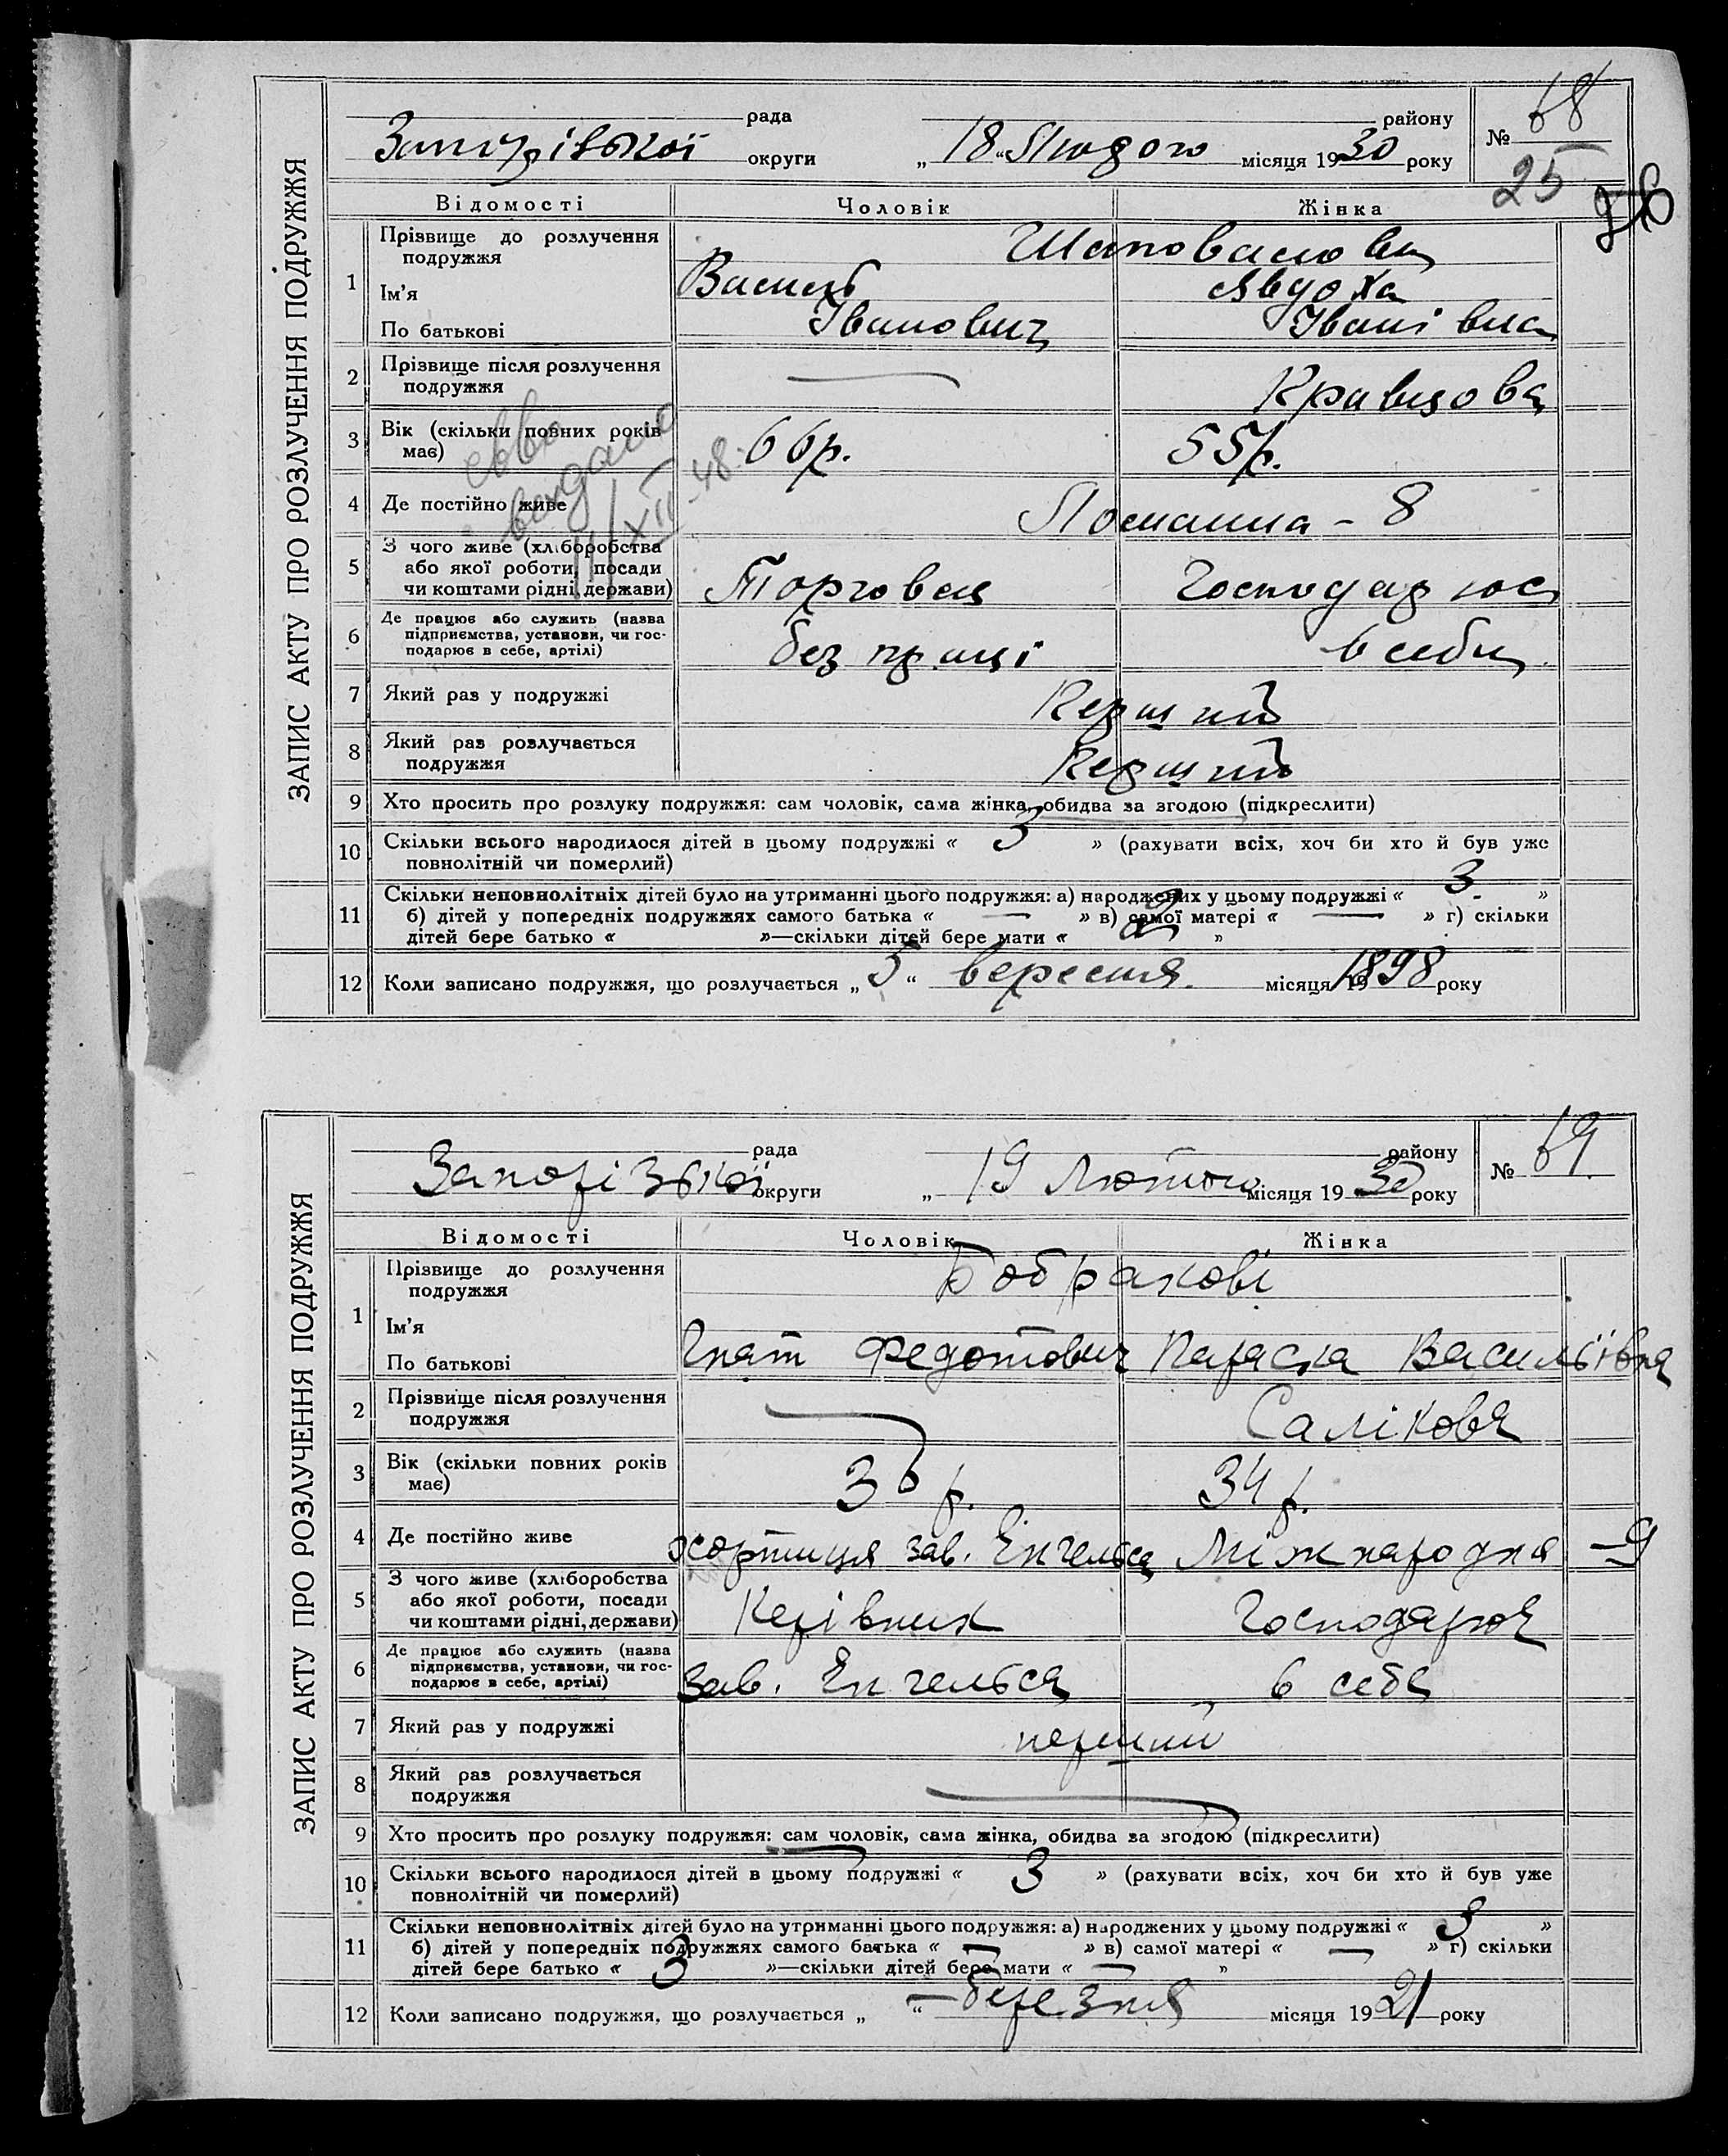 ЗАПИС АКТУ ПРО РОЗЛУЧЕННЯ ПОДРУЖЖЯ
рада району
округи „18“ місяця 1930 року № 68
25
Відомості Чоловік Жінка
1 Прізвище до розлучення подружжя Шаповалови
Ім’я Василь Явдоха
По батькові Іванович Іванівна
2 Прізвище після розлучення подружжя — Кравцова
3 Вік (скільки повних років має) 66р. 55р.
видано
XII 48
4 Де постійно живе - 8
5 З чого живе (хліборобства або якої роботи, посади чи коштами рідні, держави) Торговец Господарює
6 Де працює або служить (назва підприємства, установи, чи господарює в себе, артілі) без праці в себе
7 Який раз у подружжі Перший
8 Який раз розлучається подружжя Перший
9 Хто просить про розлуку подружжя: сам чоловік, сама жінка, обидва за згодою (підкреслити)
10 Скільки всього народилося дітей в цьому подружжі « 3 » (рахувати всіх, хоч би хто й був уже
повнолітній чи померлий)
11 Скільки неповнолітніх дітей було на утриманні цього подружжя: а) народжених у цьому подружжі « 3 »
б) дітей у попередніх подружжях самого батька « — » в) самої матері « — » г) скільки
дітей бере батько « »—скільки дітей бере мати « »
12 Коли записано подружжя, що розлучається „5“ вересня місяця 1898 року
ЗАПИС АКТУ ПРО РОЗЛУЧЕННЯ ПОДРУЖЖЯ
рада району
Запорізької округи „ 19 Лютого місяця 1930 року № 69
Відомості Чоловік Жінка
1 Прізвище до розлучення подружжя Бобракові
Ім’я
По батькові Гнат Федотович Параска Васильівна
2 Прізвище після розлучення подружжя — Салікова
3 Вік (скільки повних років має) 36 р. 34 р.
4 Де постійно живе Хортиця зав. Енгельса Міжнародня – 9
5 З чого живе (хліборобства або якої роботи, посади чи коштами рідні, держави) Керівник Господарює
6 Де працює або служить (назва підприємства, установи, чи господарює в себе, артілі) Зав. Енгельса в себе
7 Який раз у подружжі перший
8 Який раз розлучається подружжя —
9 Хто просить про розлуку подружжя: сам чоловік, сама жінка, обидва за згодою (підкреслити)
10 Скільки всього народилося дітей в цьому подружжі « 3 » (рахувати всіх, хоч би хто й був уже
повнолітній чи померлий)
11 Скільки неповнолітніх дітей було на утриманні цього подружжя: а) народжених у цьому подружжі « 3 »
б) дітей у попередніх подружжях самого батька « — » в) самої матері « — » г) скільки
дітей бере батько « 3 »—скільки дітей бере мати « — »
12 Коли записано подружжя, що розлучається „ — “ березня місяця 1921 року